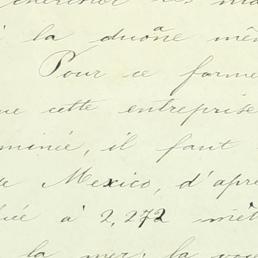 à la duoane mêm
Pour ce forme
ue cette entreprise
minée, il faut
e Mexico, d'apr
iée à 2,272 mèt
la mer: la vas